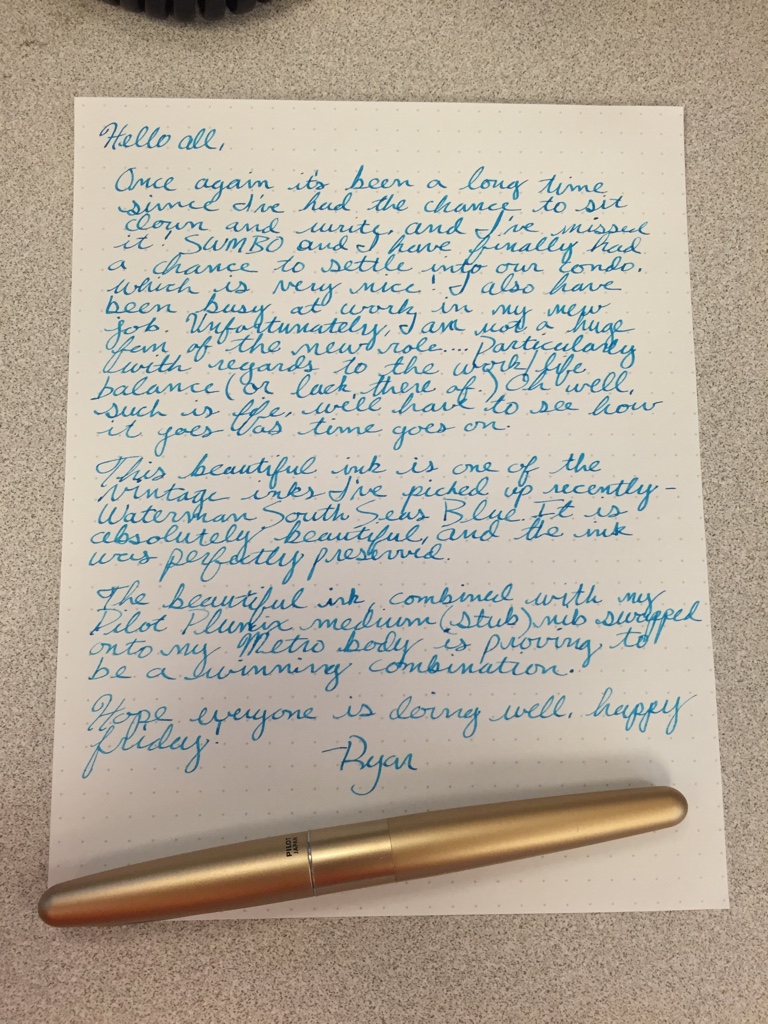 Hello all,
Once again it's been a long time
since I've had the chance to sit
down and write, and I've missed
it! SWMBO and I have finally had
a chance to settle into our condo,
which is very nice! I also have
been busy at work in my new
job. Unfortunately, I am not a huge
fan of the new role.... Particularly
with regards to the work/life
balance (or lack there of.) Oh well,
such is life, we'll have to see how
it goes as time goes on.
This beautiful ink is one of the
vintage inks I've picked up recently-
Waterman South Seas Blue. It is
absolutely beautiful, and the ink
was perfectly preserved.
The beautiful ink, combined with my
Pilot Plumix medium (stub) nib swapped
onto my Metro body is proving to
be a winning combination.
Hope everyone is doing well, happy
friday!
-Ryan
PILOT
JAPAN